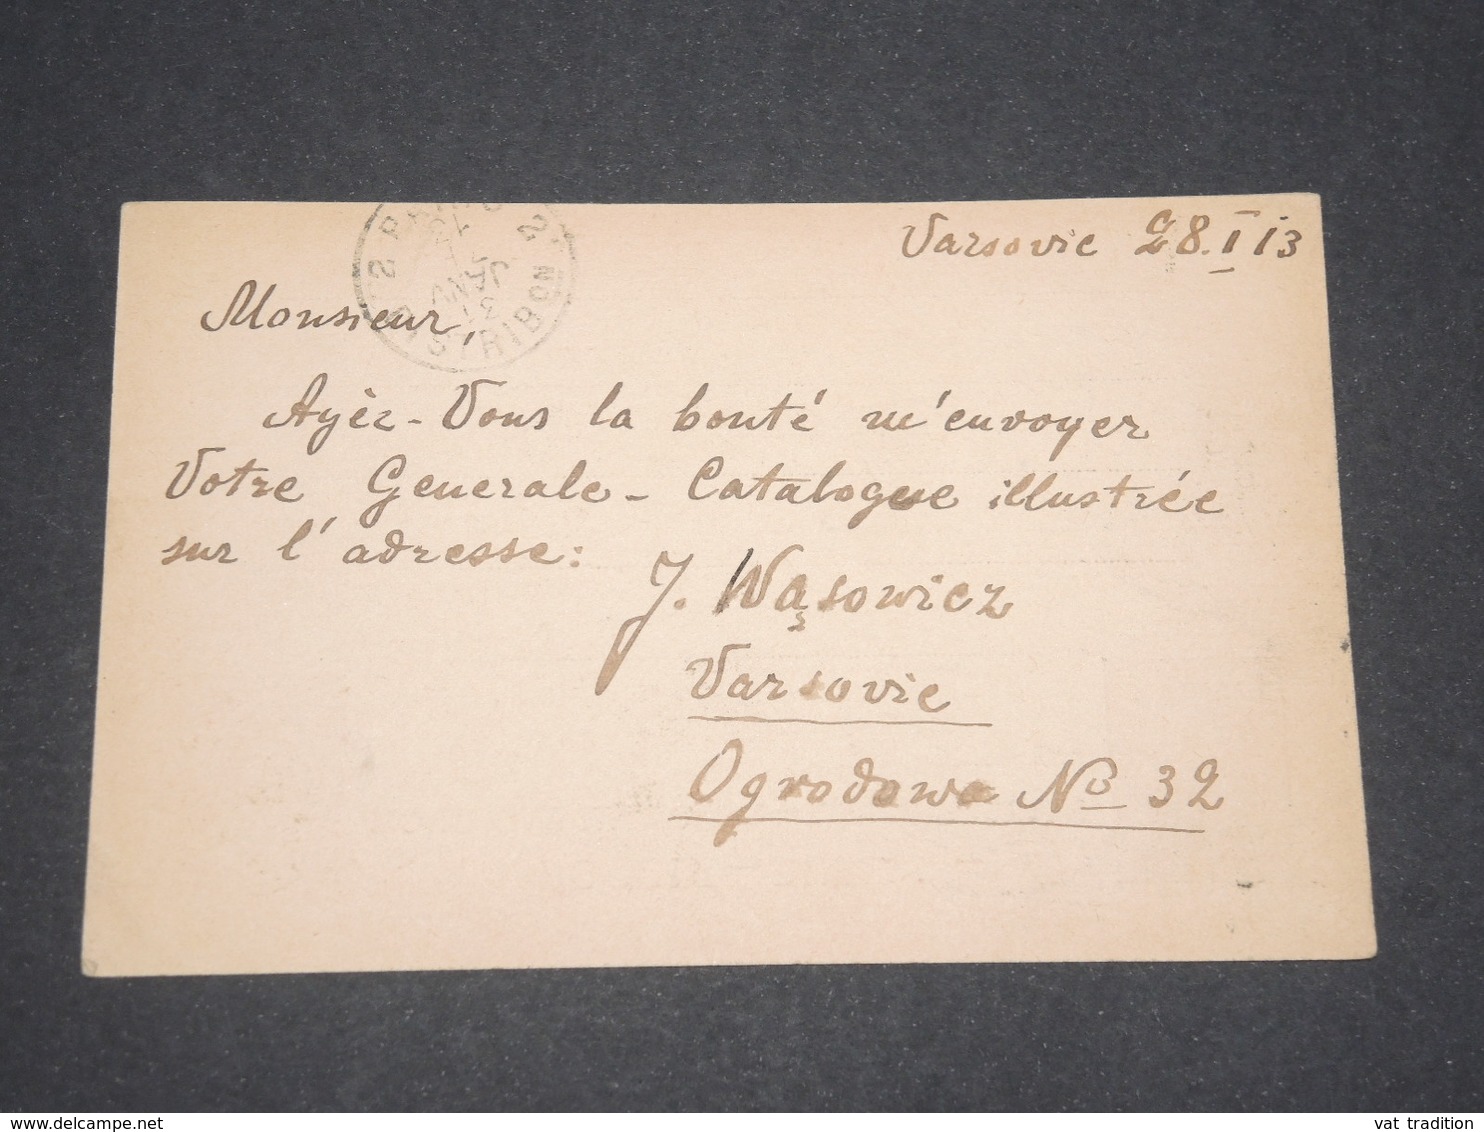 Varsovie 28.I 13
Monsieur,
Ayèz-Vous la bonté m'envoyer
Votre Generale-Catalogue illustrée
sur l'adresse:
J. Wąsowicz
Varsovie
Ogrodowa No 32
PARIS 2
JANV
DISTRIBON
vat tradition